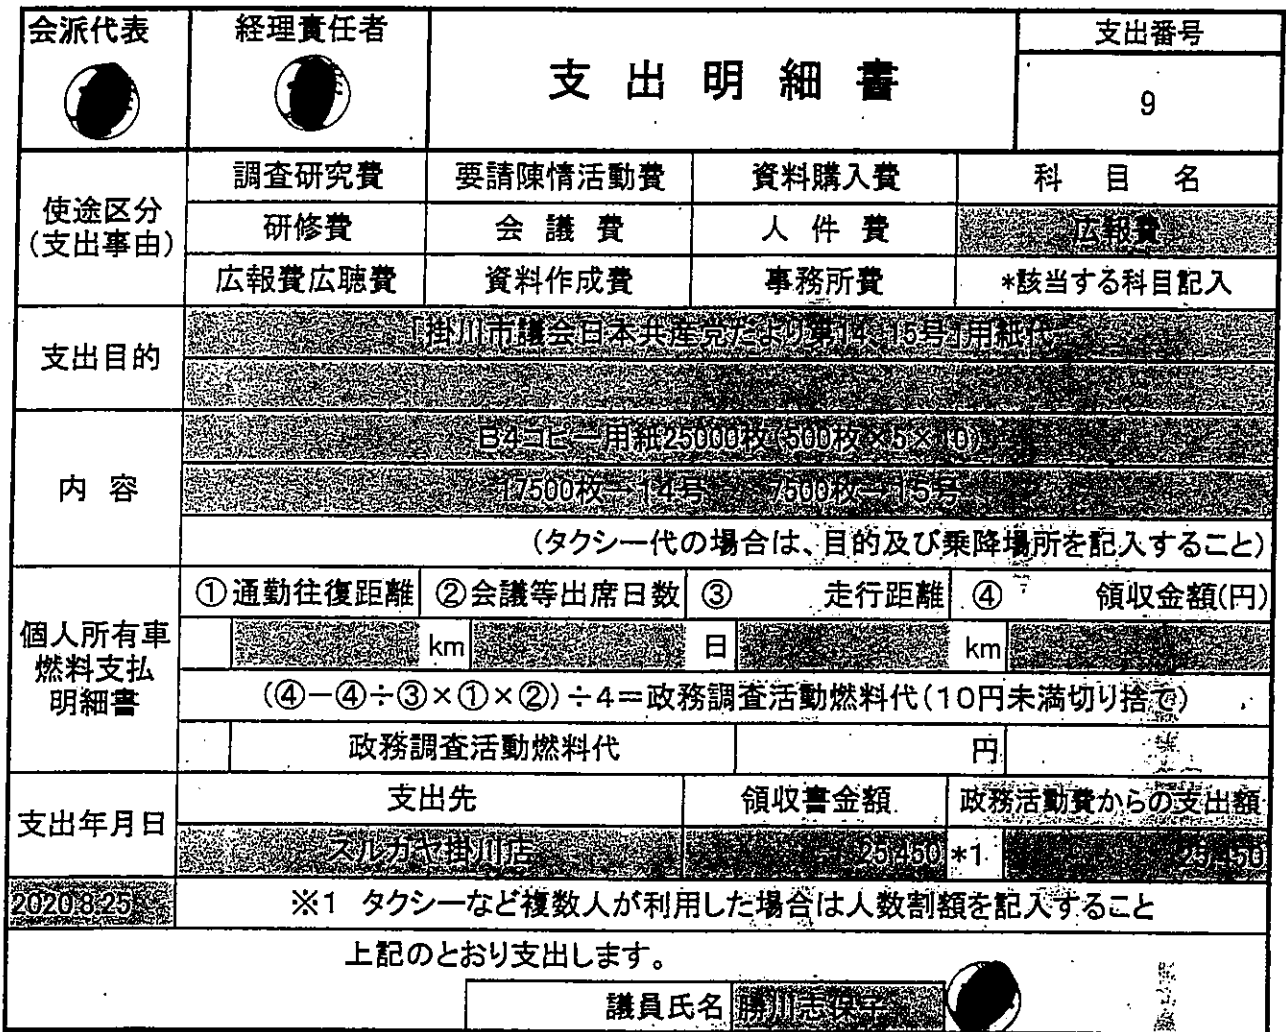 会派代表 経理責任者 支出明細書 支出番号
9
使途区分
(支出事由)
調査研究費 要請陳情活動費 資料購入費 科目名
研修費 会議費 人件費 広報費
広報費広聴費 資料作成費 事務所費 *該当する科目記入
支出目的 「掛川市議会日本共産党だより第14、15号」用紙代
内容 B4コピー用紙25000枚(500枚×5×10)
17500枚ー14号 7500枚ー15号
(タクシー代の場合は、目的及び乗降場所を記入すること)
個人所有車
燃料支払
明細書
①通勤往復距離 ②会議等出席日数 ③ 走行距離 ④ 領収金額(円)
km 日 km
(④ー④÷③×①×②)÷4=政務調査活動燃料代(10円未満切り捨て)
政務調査活動燃料代 円
支出年月日 支出先 領収書金額 政務活動費からの支出額
スルガヤ掛川店 25450 *1 25450
2020.8.25 ※1 タクシーなど複数人が利用した場合は人数割額を記入すること
上記のとおり支出します。
議員氏名 勝川志保子